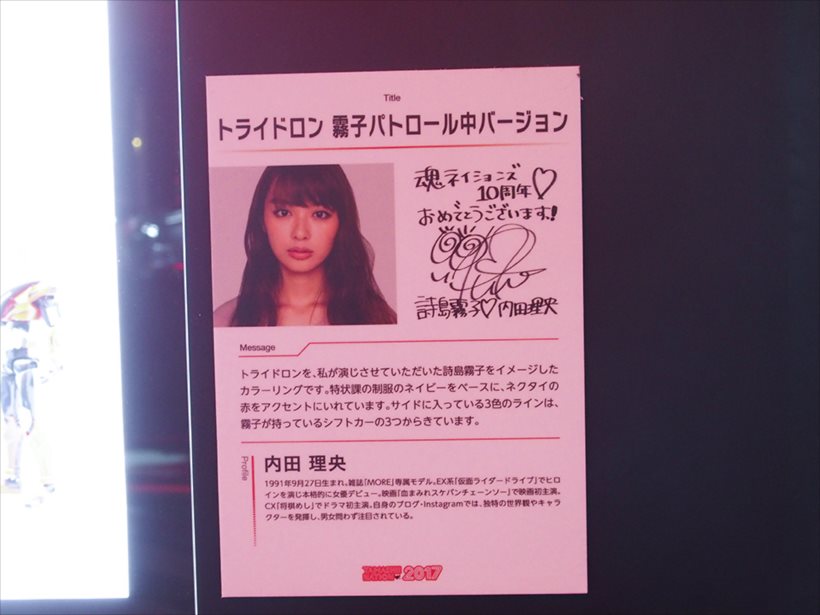 Title
トライドロン 霧子パトロール中バージョン
魂ネイションズ
10周年♡
おめでとうございます!
詩島霧子♡内田理央
Message
トライドロンを、私が演じさせていただいた詩島霧子をイメージした
カラーリングです。特状課の制服のネイビーをベースに、ネクタイの
赤をアクセントにいれています。サイドに入っている3色のラインは、
霧子が持っているシフトカーの3つからきています。
Profile
内田 理央
1991年9月27日生まれ。雑誌「MORE」専属モデル。EX系「仮面ライダードライブ」でヒロ
インを演じ本格的に女優デビュー。映画「血まみれスケバンチェーンソー」で映画初主演。
CX「将棋めし」でドラマ初主演。自身のブログ・Instagramでは、独特の世界観やキャラ
クターを発揮し、男女問わず注目されている。
TAMASHII
NATION 2017